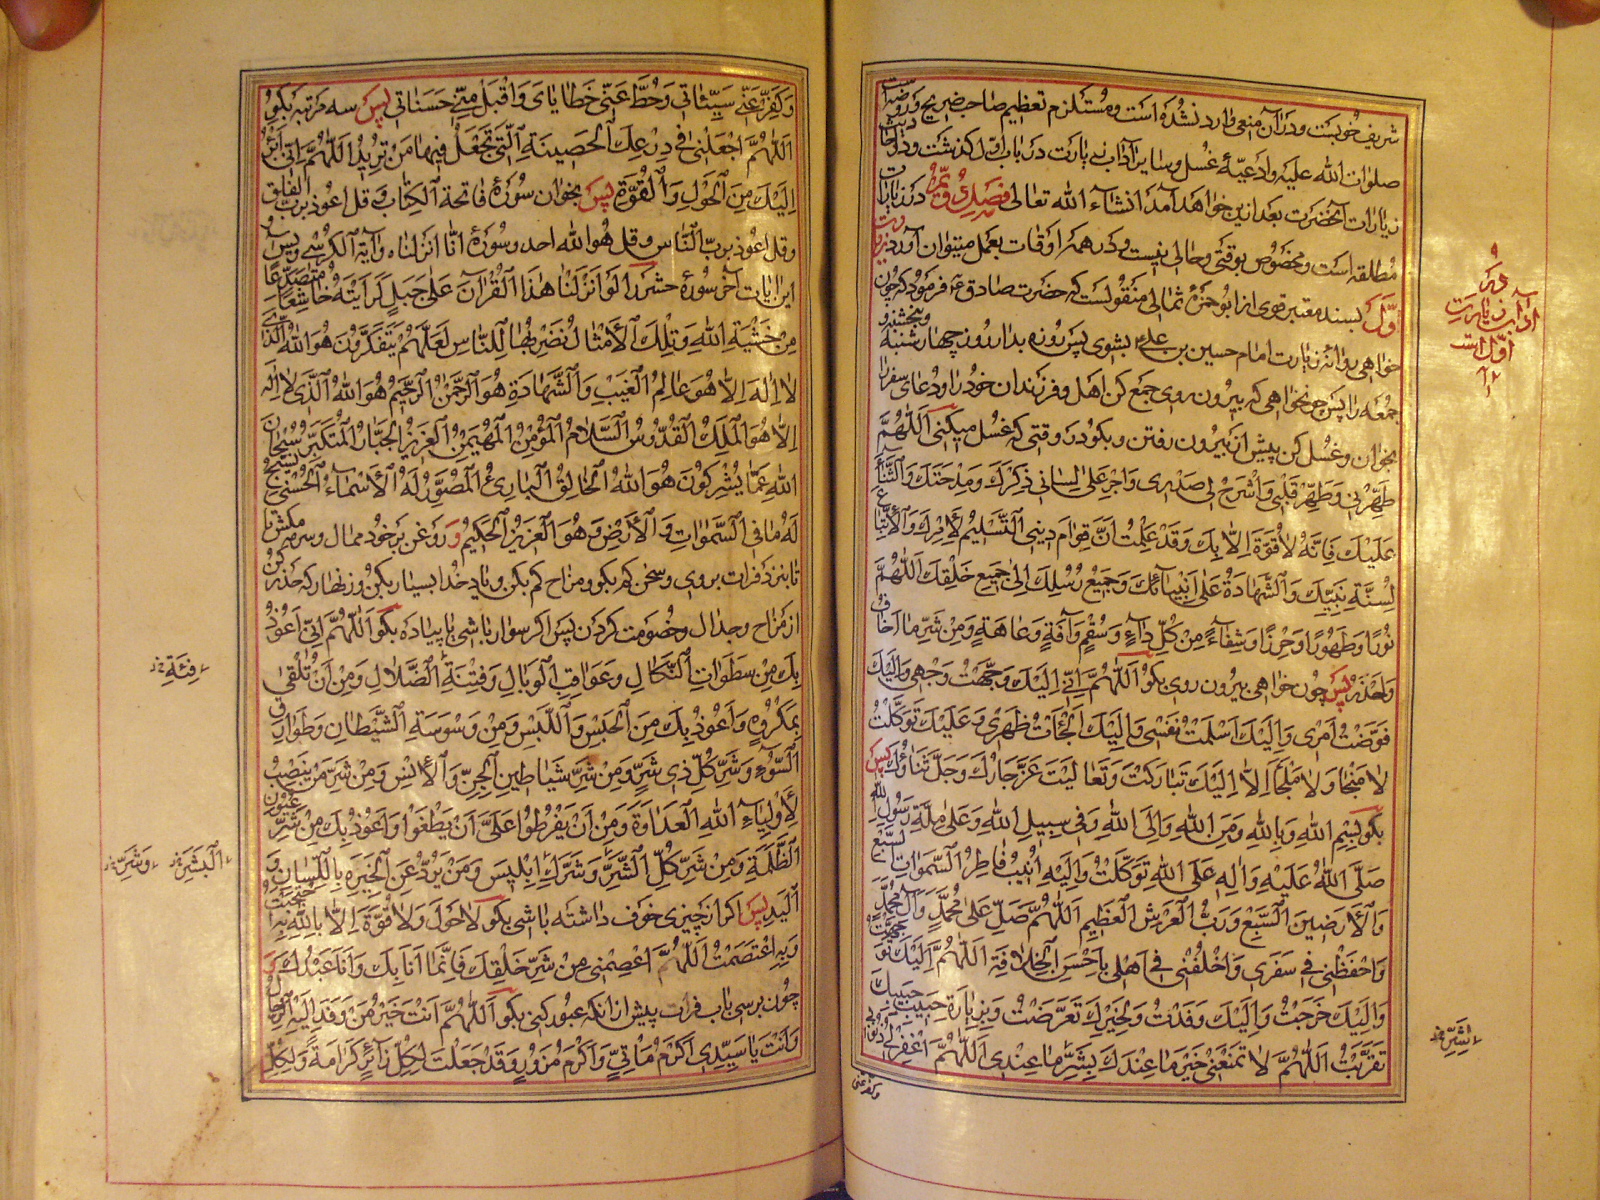 شریف خوبست و در آن منعی وارد نشده است و مستلزم تعظیم صاحب ضریح و روضه است
صلوات الله علیه و ادعیهٔ غسل و سایر آداب زیارت در باب اول گذشت و در باب
زیارات آنحضرت بعد ازین خواهد آمد انشاء الله تعالی فصل در زیارات
مطلقه است و مخصوص بوقتی و حالی نیست و در همه اوقات بعمل میتوان آورد زیارت
اول بسند معتبر قوی از ابو حمزه ثمالی منقولست که حضرت صادق ع فرمود که چون
خواهی روانه زیارت امام حسین بن علی ع بشوی پس روزه بدار روز چهارشنبه و پنجشنبه و
جمعه را پس چو نخواهی که بیرون روی جمع کن اهل و فرزندان خود را و دعای سفر را
بخوان و غسل کن پیش از بیرون رفتن و بگو در وقتی که غسل میکنی اَللّٰهُمَّ
طَهِّرْنی وَطَهِّرْ قَلْبی وَاشْرَحْ لی صَدْری وَاَجْرِ عَلیٰ لِسٰانی ذِکْرَکَ وَمِدْحَتَکَ وَالثَّنٰاءَ
عَلَیْکَ فَاِنَّهُ لاٰ قُوَّةَ اِلاّٰ بِکَ وَقَدْ عَلِمْتُ اَنَّ قِوٰامَ دینی اَلتَّسْلیمُ لِاَمْرِکَ وَالْاِتِّبٰاعُ
لِسُنَّةِ نَبِیِّکَ وَالشَّهٰادَةُ عَلیٰ اَنْبِیٰائِکَ وَجَمیعِ رُسُلِکَ اِلیٰ جَمیعِ خَلْقِکَ اَللّٰهُمَّ
نُورًا وَطَهُورًا وَحِرْزًا وَشِفٰاءً مِنْ کُلِّ دٰاءٍ وَسُقْمٍ وَآفَةٍ وَعٰاهَةٍ وَمِنْ شَرِّ مٰا اَخٰافُ
وَاَحْذَرُ پس چون خواهی بیرون روی بگو اَللّٰهُمَّ اِنّی اِلَیْکَ وَجَّهْتُ وَجْهی وَاِلَیْکَ
فَوَّضْتُ اَمْری وَاِلَیْکَ اَسْلَمْتُ نَفْسی وَاِلَیْکَ اَلْجَاْتُ ظَهْری وَعَلَیْکَ تَوَکَّلْتُ
لاٰ مَنْجٰا وَلاٰ مَلْجَاَ اِلاّٰ اِلَیْکَ تَبٰارَکْتَ وَتَعٰالَیْتَ عَزَّ جٰارُکَ وَجَلَّ ثَنٰاؤُکَ پس
بگو بِسْمِ اللّٰهِ وَبِاللّٰهِ وَمِنَ اللّٰهِ وَاِلَی اللّٰهِ وَفی سَبیلِ اللّٰهِ وَعَلیٰ مِلَّةِ رَسُولِ اللّٰهِ
صَلَّی اللّٰهُ عَلَیْهِ وَاٰلِهِ عَلَی اللّٰهِ تَوَکَّلْتُ وَاِلَیْهِ اُنیبُ فٰاطِرِ السَّمٰوٰاتِ السَّبْعِ
وَالْاَرَضینَ السَّبْعِ وَرَبِّ الْعَرْشِ الْعَظیمِ اَللّٰهُمَّ صَلِّ عَلیٰ مُحَمَّدٍ وَاٰلِ مُحَمَّدٍ
وَاحْفَظْنی فی سَفَری وَاخْلُفْنی فی اَهْلی بِاَحْسَنِ الْخِلاٰفَةِ اَللّٰهُمَّ اِلَیْکَ تَوَجَّهْتُ
وَاِلَیْکَ خَرَجْتُ وَاِلَیْکَ وَفَدْتُ وَلِخَیْرِکَ تَعَرَّضْتُ وَبِزِیٰارَةِ حَبیبِ حَبیبِکَ
تَقَرَّبْتُ اَللّٰهُمَّ لاٰ تَمْنَعْنی خَیْرَ مٰا عِنْدَکَ بِشَرِّ مٰا عِنْدی اَللّٰهُمَّ اغْفِرْ لی ذُنُوبی
وکفر عنی
آداب زیارت
اول است
لِشَرِّ
وَکَفِّرْ عَنّی سَیِّئٰاتی وَحُطَّ عَنّی خَطٰایٰایَ وَاقْبَلْ مِنّی حَسَنٰاتی پس سه مرتبه بگو
اَللّٰهُمَّ اجْعَلْنی فی دِرْعِکَ الْحَصینَةِ الَّتی تَجْعَلُ فیهٰا مَنْ تُریدُ اَللّٰهُمَّ اِنّی اَبْرَءُ
اِلَیْکَ مِنَ الْحَوْلِ وَالْقُوَّةِ پس بخوان سورهٔ فاتحة الکتاب و قل اعوذ برب الفلق
و قل اعوذ برب الناس و قل هو الله احد و سورهٔ انا انزلناه و آیة الکرسی و یس و
این ایات آخر سورهٔ حشر را لَوْ اَنْزَلْنٰا هٰذَا الْقُرْآنَ عَلیٰ جَبَلٍ لَرَاَیْتَهُ خٰاشِعًا مُتَصَدِّعًا
مِنْ خَشْیَةِ اللّٰهِ وَتِلْکَ الْاَمْثٰالُ نَضْرِبُهٰا لِلنّٰاسِ لَعَلَّهُمْ یَتَفَکَّرُونَ هُوَ اللّٰهُ الَّذی
لاٰ اِلٰهَ اِلاّٰ هُوَ عٰالِمُ الْغَیْبِ وَالشَّهٰادَةِ هُوَ الرَّحْمٰنُ الرَّحیمُ هُوَ اللّٰهُ الَّذی لاٰ اِلٰهَ
اِلاّٰ هُوَ الْمَلِکُ الْقُدُّوسُ السَّلاٰمُ الْمُؤْمِنُ الْمُهَیْمِنُ الْعَزیزُ الْجَبّٰارُ الْمُتَکَبِّرُ سُبْحٰانَ
اللّٰهِ عَمّٰا یُشْرِکُونَ هُوَ اللّٰهُ الْخٰالِقُ الْبٰارِئُ الْمُصَوِّرُ لَهُ الْاَسْمٰاءُ الْحُسْنیٰ یُسَبِّحُ
لَهُ مٰا فِی السَّمٰوٰاتِ وَالْاَرْضِ وَهُوَ الْعَزیزُ الْحَکیمُ و روغن بر خود ممال و سرمه مکش تا
تا بنزد فرات بروی و سخن کم بگو و مزاح کم بکن و یاد خدا بسیار بکن و زنهار که حذر کن
از مزاح و جدال و خصومت کردن پس اگر سوار باشی یا پیاده بگو اَللّٰهُمَّ اِنّی اَعُوذُ
بِکَ مِنْ سَطَوٰاتِ النَّکٰالِ وَعَوٰاقِبِ الْوَبٰالِ وَفِتْنَةِ الضَّلاٰلِ وَمِنْ اَنْ تَلْقٰنی
بِمَکْرُوهٍ وَاَعُوذُ بِکَ مِنَ الْحَبْسِ وَاللَّبْسِ وَمِنْ وَسْوَسَةِ الشَّیْطٰانِ وَطَوٰارِقِ
السُّوءِ وَشَرِّ کُلِّ ذی شَرٍّ وَمِنْ شَرِّ شَیٰاطینِ الْجِنِّ وَالْاِنْسِ وَمِنْ شَرِّ مَنْ یَنْصِبُ
لِاَوْلِیٰاءِ اللّٰهِ الْعَدٰاوَةَ وَمِنْ اَنْ یَفْرُطُوا عَلَیَّ اَنْ یَطْغَوْا وَاَعُوذُ بِکَ مِنْ شَرِّ عُیُونِ
الظَّلَمَةِ وَمِنْ شَرِّ کُلِّ الشَّرِّ وَشَرَکِ اِبْلیسَ وَمَنْ یَرُدُّ عَنِ الْخَیْرِ بِاللِّسٰانِ وَ
الْیَدِ پس اگر از چیزی خوف داشته باشی بگو لاٰ حَوْلَ وَلاٰ قُوَّةَ اِلاّٰ بِاللّٰهِ بِهِ احْتَجَبْتُ
وَبِهِ اعْتَصَمْتُ اَللّٰهُمَّ اعْصِمْنی مِنْ شَرِّ خَلْقِکَ فَاِنَّمٰا اَنَا بِکَ وَاَنَا عَبْدُکَ پس
چون برسی باب فرات پیش از انکه عبور کنی بگو اَللّٰهُمَّ اَنْتَ خَیْرُ مَنْ وَفَدَ اِلَیْهِ الرِّجٰالُ
وَاَنْتَ یٰا سَیِّدی اَکْرَمُ مَاْتِیٍّ وَاَکْرَمُ مَزُورٍ وَقَدْ جَعَلْتَ لِکُلِّ زٰائِرٍ کَرٰامَةً وَلِکُلِّ
فِئَةِ
اَلْبَشَرِ
وَشَرِّ